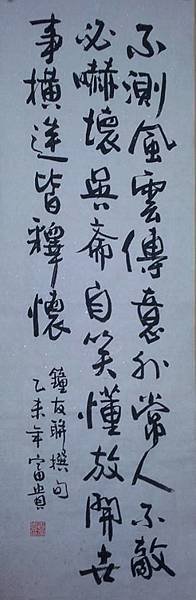 不測風雲傳意外常人不敵
必嚇壞吳斎自笑懂放開世
事橫逆皆釋懷
鐘友聯撰句
乙未年富貴